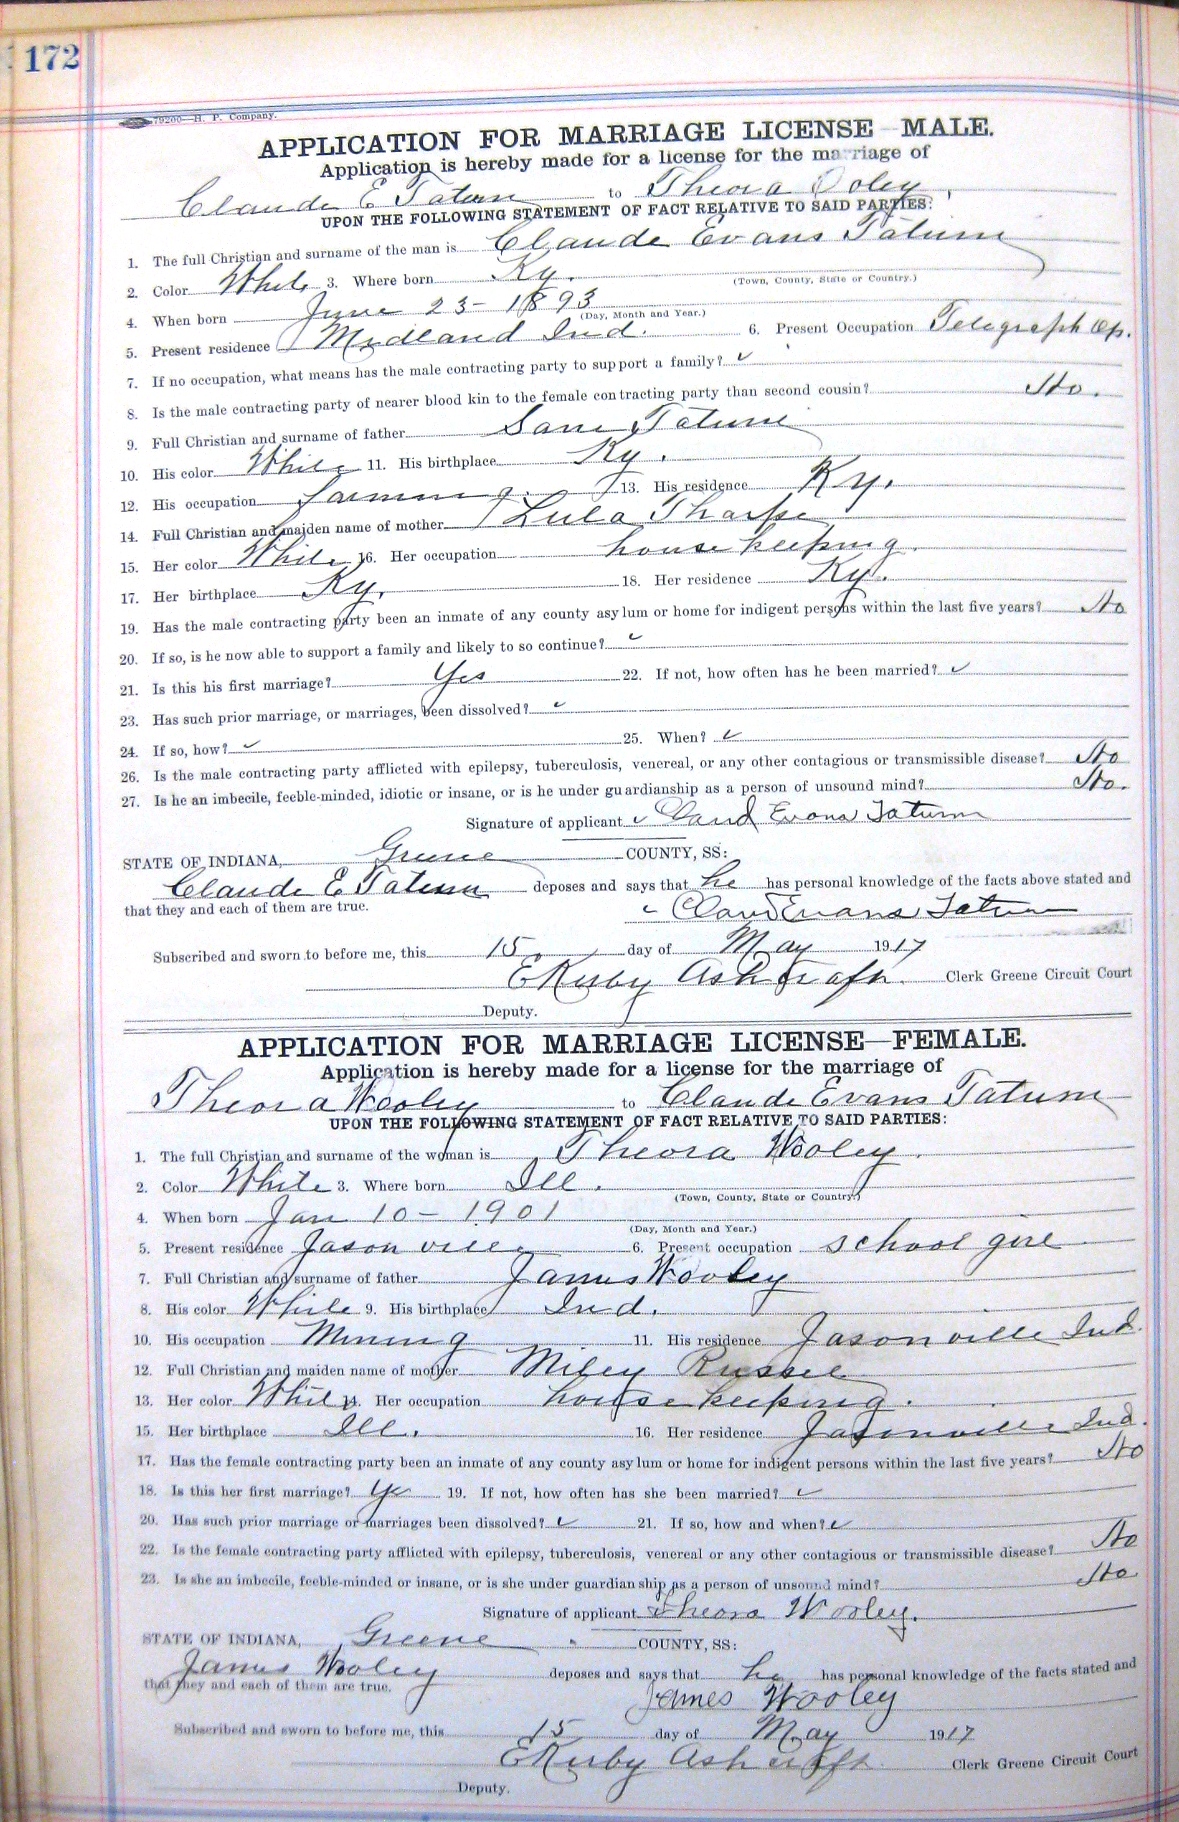 172
79200—H. P. Company.
APPLICATION FOR MARRIAGE LICENSE—MALE.
Application is hereby made for a license for the marriage of
Claude E Tatum to Theora Ooley
UPON THE FOLLOWING STATEMENT OF FACT RELATIVE TO SAID PARTIES:
1. The full Christian and surname of the man is Claude Evans Tatum
2. Color White 3. Where born Ky.
(Town, County, State or Country.)
4. When born June 23 - 1893
(Day, Month and Year.)
5. Present residence Midland Ind. 6. Present Occupation Telegraph Op.
7. If no occupation, what means has the male contracting party to support a family? ✓
8. Is the male contracting party of nearer blood kin to the female contracting party than second cousin? No.
9. Full Christian and surname of father Sam Tatum
10. His color White 11. His birthplace Ky.
12. His occupation farming 13. His residence Ky.
14. Full Christian and maiden name of mother Lula Tharpe
15. Her color White 16. Her occupation house keeping.
17. Her birthplace Ky. 18. Her residence Ky.
19. Has the male contracting party been an inmate of any county asylum or home for indigent persons within the last five years? No
20. If so, is he now able to support a family and likely to so continue? ✓
21. Is this his first marriage? Yes 22. If not, how often has he been married? ✓
23. Has such prior marriage, or marriages, been dissolved? ✓
24. If so, how? ✓ 25. When? ✓
26. Is the male contracting party afflicted with epilepsy, tuberculosis, venereal, or any other contagious or transmissible disease? No
27. Is he an imbecile, feeble-minded, idiotic or insane, or is he under guardianship as a person of unsound mind? No.
Signature of applicant ✓ Claud Evans Tatum
STATE OF INDIANA, Greene COUNTY, SS:
Claude E Tatum deposes and says that he has personal knowledge of the facts above stated and
that they and each of them are true. ✓ Claud Evans Tatum
Subscribed and sworn to before me, this 15 day of May 1917
E Kirby Ashcraft. Clerk Greene Circuit Court
Deputy.
APPLICATION FOR MARRIAGE LICENSE—FEMALE.
Application is hereby made for a license for the marriage of
Theora Wooley to Claude Evans Tatum
UPON THE FOLLOWING STATEMENT OF FACT RELATIVE TO SAID PARTIES:
1. The full Christian and surname of the woman is Theora Wooley.
2. Color White 3. Where born Ill.
(Town, County, State or Country.)
4. When born Jan 10 - 1901
(Day, Month and Year.)
5. Present residence Jasonville 6. Present occupation school girl
7. Full Christian and surname of father James Wooley
8. His color White 9. His birthplace Ind.
10. His occupation Mining 11. His residence Jasonville Ind.
12. Full Christian and maiden name of mother Miley Russel
13. Her color White 14. Her occupation house keeping.
15. Her birthplace Ill. 16. Her residence Jasonville Ind.
17. Has the female contracting party been an inmate of any county asylum or home for indigent persons within the last five years? No
18. Is this her first marriage? Yes 19. If not, how often has she been married? ✓
20. Has such prior marriage or marriages been dissolved? ✓ 21. If so, how and when? ✓
22. Is the female contracting party afflicted with epilepsy, tuberculosis, venereal or any other contagious or transmissible disease? No
23. Is she an imbecile, feeble-minded or insane, or is she under guardianship as a person of unsound mind? No
Signature of applicant Theora Wooley.
STATE OF INDIANA, Greene COUNTY, SS:
James Wooley deposes and says that he has personal knowledge of the facts stated and
that they and each of them are true. James Wooley
Subscribed and sworn to before me, this 15 day of May 1917
E Kirby Ashcraft Clerk Greene Circuit Court
Deputy.